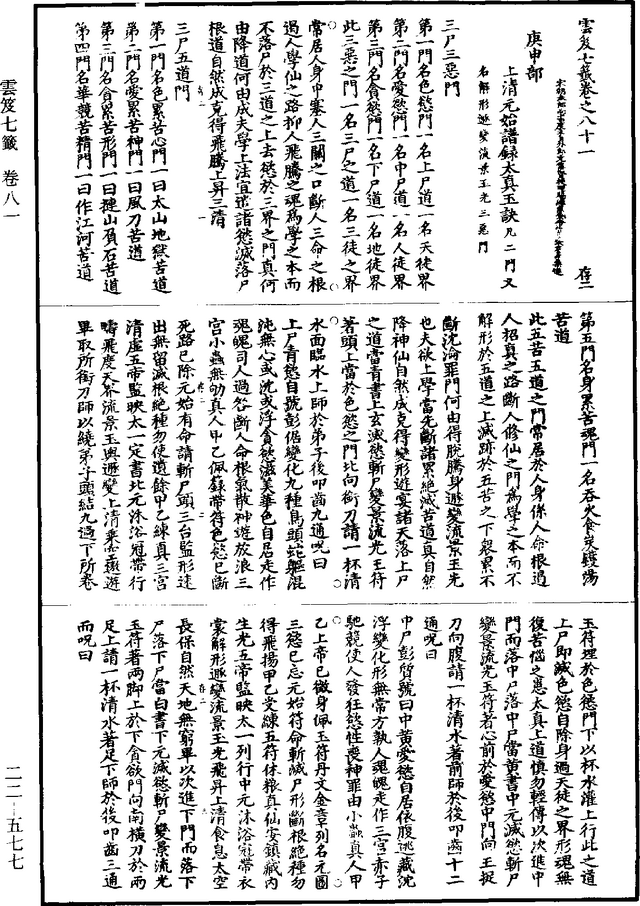 雲笈七籤卷之八十一
存二
庚申部
上清元始譜錄太真玉訣凡二門又
名解形遯變流景玉光三惡門
三尸三惡門
第一門名色慾門一名上尸道一名天徒界
第二門名愛慾門一名中尸道一名人徒界
第三門名貪慾門一名下尸道一名地徒界
此三惡之門一名三尸之道一名三徒之界
常居人身中塞人三關之口斷人三命之根
遏人學仙之路抑人飛騰之魂爲學之本而
不落尸於三道之上去慾於三界之門真何
由降道何由成夫學上法宜遣諸慾滅落尸
根道自然成克得飛騰上昇三清
三尸五道門
第一門名色累苦心門一曰太山地獄苦道
第二門名愛累苦神門一曰風刀苦道
第三門名貪累苦形門一曰揵山負石苦道
第四門名華競苦精門一曰作江河苦道
第五門名身累苦魂門一名吞火食炭鑊湯
苦道
此五苦五道之門常居於人身係人命根遏
人招真之路斷人修仙之門爲學之本而不
解形於五道之上滅跡於五苦之下衆累不
斷沈淪罪門何由得脫騰身遯變流景玉光
也夫欲上學當先斷諸累絶滅苦道真自然
降神仙自然成克得變形遊宴諸天落上尸
之道當青書上玄滅慾斬尸變景流光玉符
著頭上當於色慾之門比向銜刀請一杯清
水面臨水上師於弟子後叩齒九通呪曰
上尸青慾自號彭倨變化九種鳥頭蛇軀混
沌無心或沈或浮貪慾滋美華色自居走作
魂魄司人過咎斷人命根氣散神遊放浪三
宮小蟲無効真人甲乙佩籙帶符色慾已斷
死路已除元始有命請斬尸頭三台監形速
出無留滅根絶種勿使遺餘甲乙練真三宮
清虛五帝監映太一定書比元沐浴冠帶行
疇飛度天界流景玉輿遯變上清乘雲遨遊
畢取所銜刀師以繞弟子頭結九過下所卷
玉符埋於色慾門下以杯水灌上行此之道
上尸即滅色慾自除身過天徒之界形魂無
復苦惱之患太真上道慎勿輕傳以次進中
門而落中尸落中尸當黃書中元滅慾斬尸
變景流光玉符著心前於愛慾中門向王捉
刀向腹請一杯清水著前師於後叩齒十二
通呪曰
中尸彭質號曰中黃愛慾自居依腹逃藏沈
浮變化形無常方執人魂魄走作三宮赤子
馳競使人發狂慾性喪神罪由小蟲真人甲
乙上帝已徹身佩玉符丹文金章列名元圖
三慾已忘元始符命斬滅尸形斷根絶種勿
得飛揚甲乙受練五符休糧真仙安鎮藏內
生光五帝監映太一列行中元沐浴冠帶衣
裳解形遯變流景玉光飛昇上清食息太空
長保自然天地無窮畢以次進下門而落下
尸落下尸當白書下元滅慾斬尸變景流光
玉符著兩脚上於下貪欲門向南橫刀於兩
足上請一杯清水著足下師於後叩齒三通
而呪曰
雲笈七籤 卷八一
二二—五七七